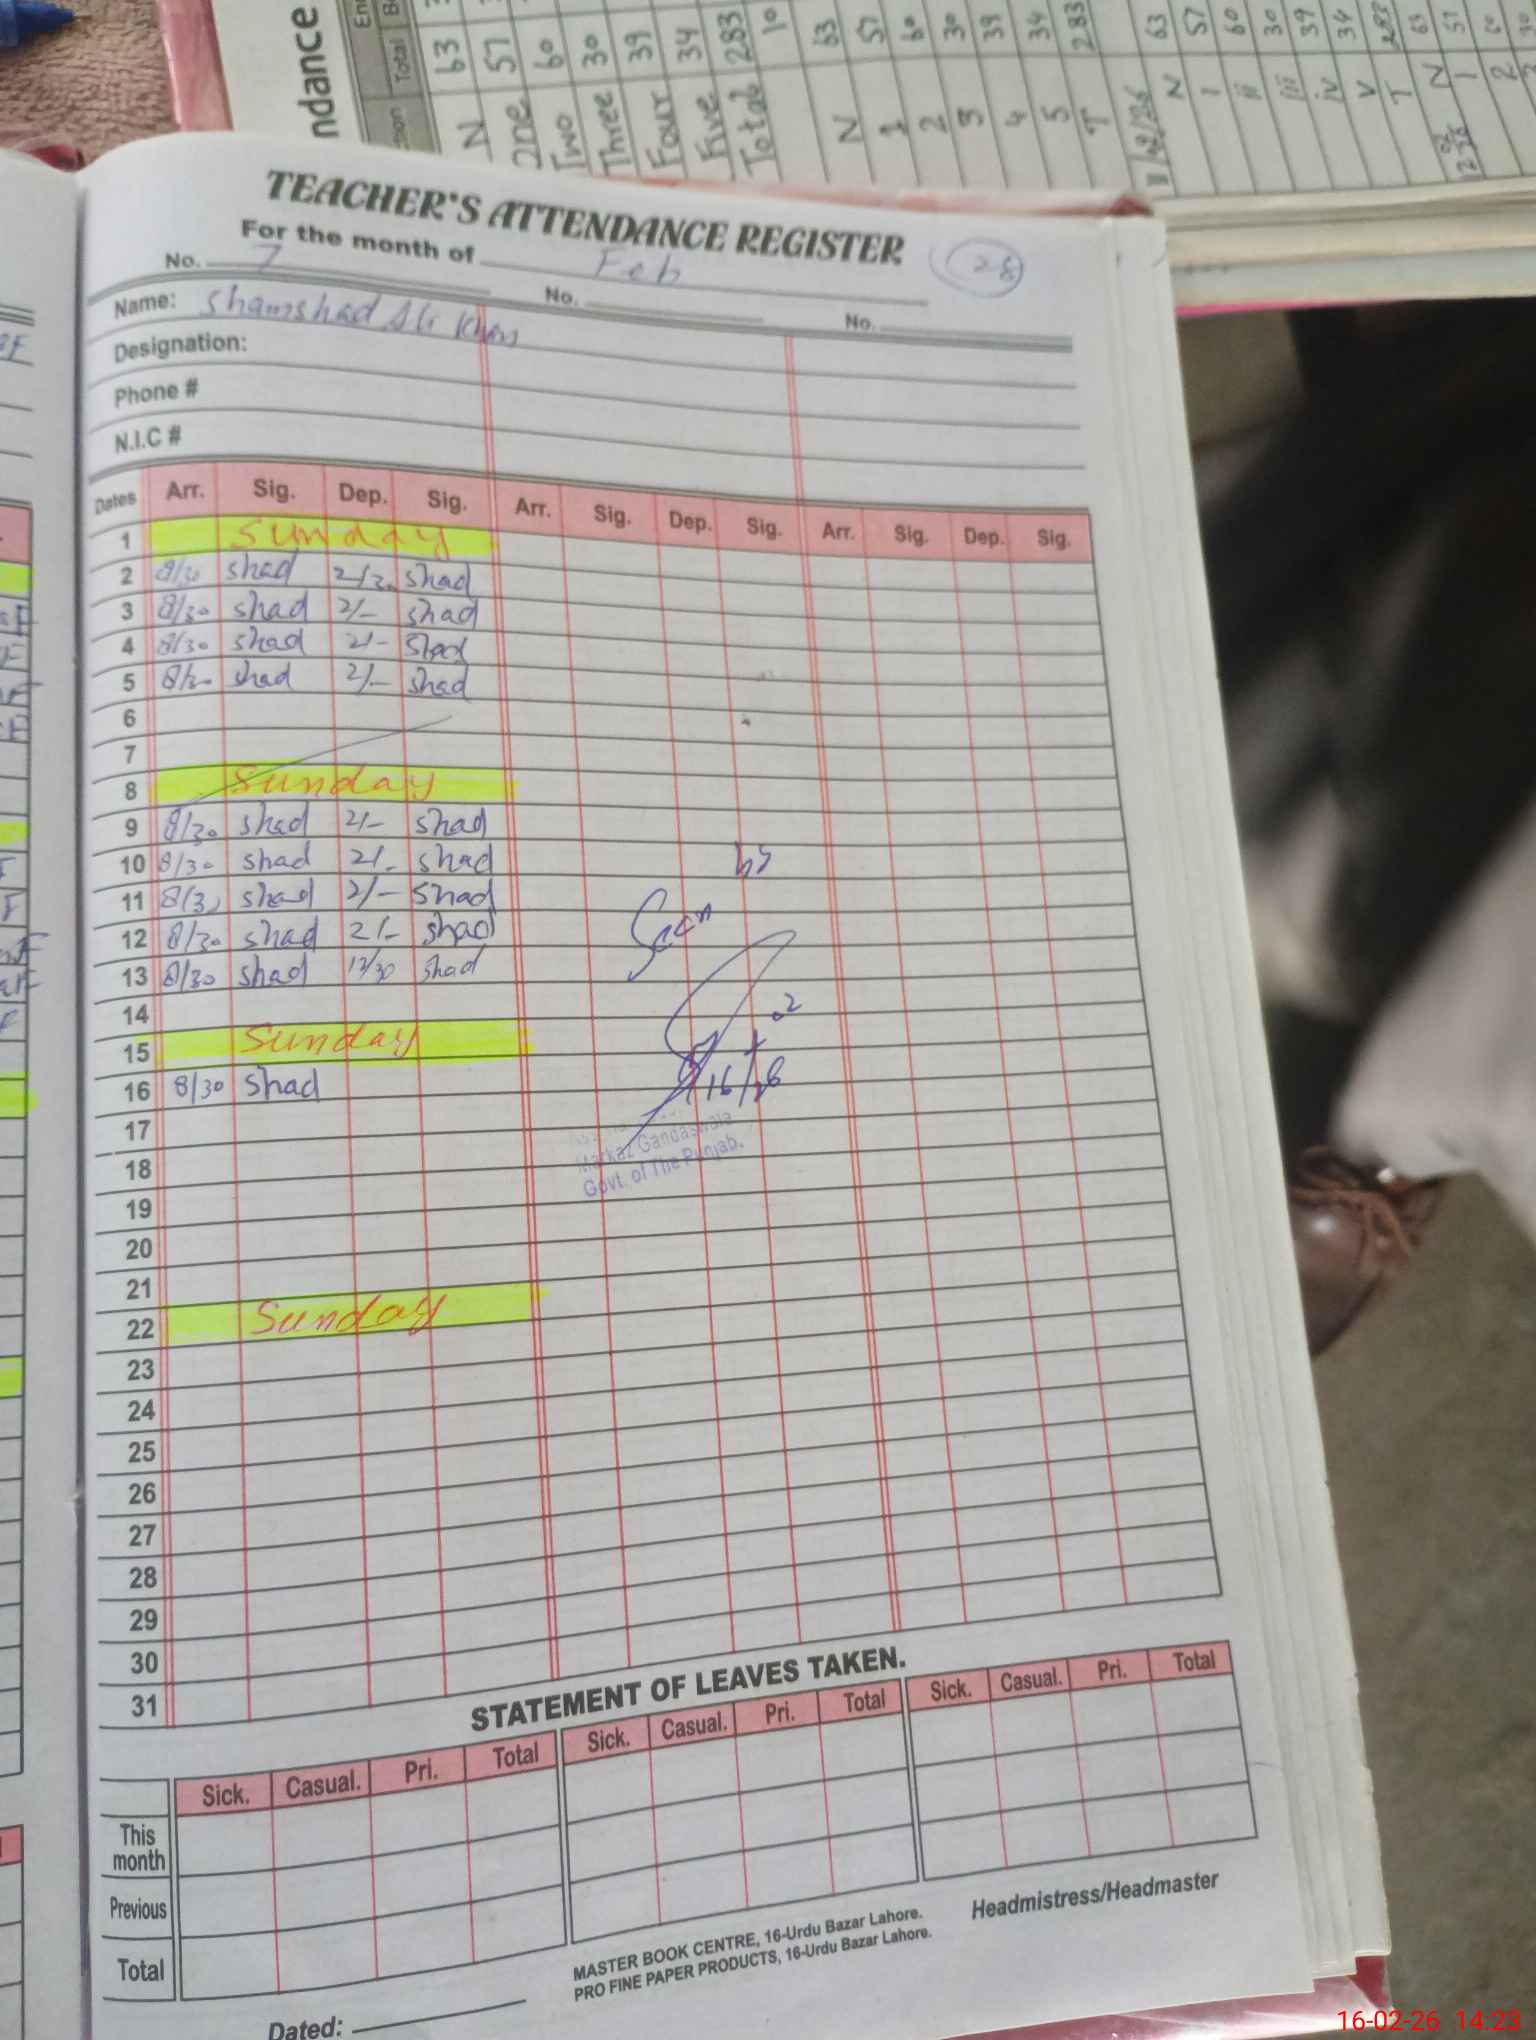 ndance
Total
N 63
One 57
Two 60
Three 30
Four 39
Five 34
Total 283
10
N 63
1 57
2 60
3 30
4 39
5 34
T 283
N 63
I 57
ii 60
iii 30
iv 39
V 34
T 283
N 63
1 57
2 60
TEACHER'S ATTENDANCE REGISTER
For the month of Feb 28
No. 7 No. No.
Name: Shamshad Ali Khan
Designation:
Phone #
N.I.C #
Dates Arr. Sig. Dep. Sig. Arr. Sig. Dep. Sig. Arr. Sig. Dep. Sig.
1 Sunday
2 8/30 shad 2/30 shad
3 8/30 shad 2/- shad
4 8/30 shad 2/- shad
5 8/30 shad 2/- shad
6
7
8 Sunday
9 8/30 shad 2/- shad
10 8/30 shad 2/- shad
11 8/30 shad 2/- shad
12 8/30 shad 2/- shad
13 8/30 shad 12/30 shad
14
15 Sunday
16 8/30 shad
Seen
16/02/26
Markaz Gandaswala
Govt. of The Punjab.
17
18
19
20
21
22 Sunday
23
24
25
26
27
28
29
30
31
STATEMENT OF LEAVES TAKEN.
Sick. Casual. Pri. Total Sick. Casual. Pri. Total Sick. Casual. Pri. Total
This month
Previous
Total
Headmistress/Headmaster
MASTER BOOK CENTRE, 16-Urdu Bazar Lahore.
PRO FINE PAPER PRODUCTS, 16-Urdu Bazar Lahore.
Dated:
16-02-26 14:23